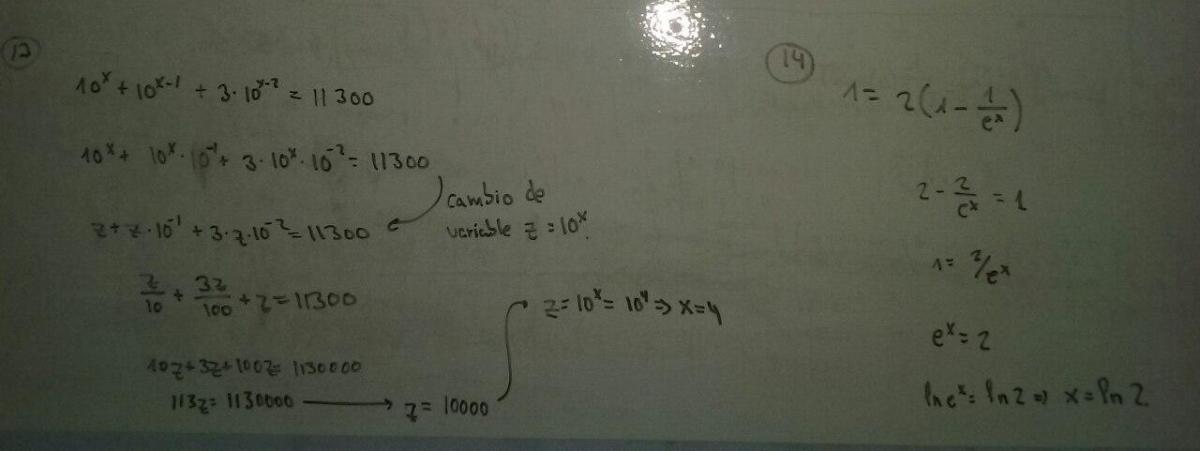 13
10ˣ + 10ˣ⁻¹ + 3·10ˣ⁻² = 11300
10ˣ + 10ˣ·10⁻¹ + 3·10ˣ·10⁻² = 11300
cambio de
variable z = 10ˣ.
z + z·10⁻¹ + 3·z·10⁻² = 11300
z/10 + 3z/100 + z = 11300
10z + 3z + 100z = 1130000
113z = 1130000 → z = 10000
z = 10ˣ = 10⁴ ⇒ x = 4
14
1 = 2(1 - 1/eˣ)
2 - 2/eˣ = 1
1 = 2/eˣ
eˣ = 2
ln eˣ = ln 2 ⇒ x = ln 2